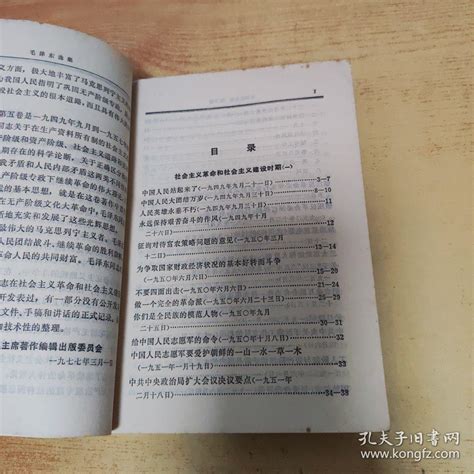 毛泽东选集
义方面，极大地丰富了马克思列宁主义
我国人民指明了巩固无产阶级专政、
设社会主义的根本道路，而且具有伟大
第五卷是一九四九年九月到一九五七
同志关于在生产资料所有制的社会
产阶级和资产阶级、社会主义道路
期存在的科学论断，关于正确区分
矛盾和人民内部矛盾
专政下继续革命的伟大
的基本思想，就是在
无产阶级文化大革命中，毛泽
地充实和发展了这些光辉思想。
的马克思到宁主义者。毛
人民团结战斗、继续革命的胜利旗
革命人民的共同财富。毛泽东同志
志在社会主义革命和社会主义建设
开发表过，有一部分没有公开
文件、手稿和讲话的正式记录，
和技术性的整理。
主席著作编辑出版委员会
一九七七年三月一日
1
目录
社会主义革命和社会主义建设时期（一）
中国人民站起来了（一九四九年九月二十一日） 3—7
中国人民大团结万岁（一九四九年九月三十日） 8—10
人民英雄永垂不朽（一九四九年九月三十日） 11
永远保持艰苦奋斗的作风（一九四九年十月
二十六日） 12
征询对待富农策略问题的意见（一九五〇年三月
十二日） 13—14
为争取国家财政经济状况的基本好转而斗争
（一九五〇年六月六日） 15—20
不要四面出击（一九五〇年六月六日） 21—24
做一个完全的革命派（一九五〇年六月二十三日） 25—29
你们是全民族的模范人物（一九五〇年九月
二十五日） 30—31
给中国人民志愿军的命令（一九五〇年十月八日） 31—32
中国人民志愿军要爱护朝鲜的一山一水一草一木
（一九五一年一月十九日） 33
中共中央政治局扩大会议决议要点（一九五一年
二月十八日） 34—38
孔夫子旧书网
www.kongfz.com